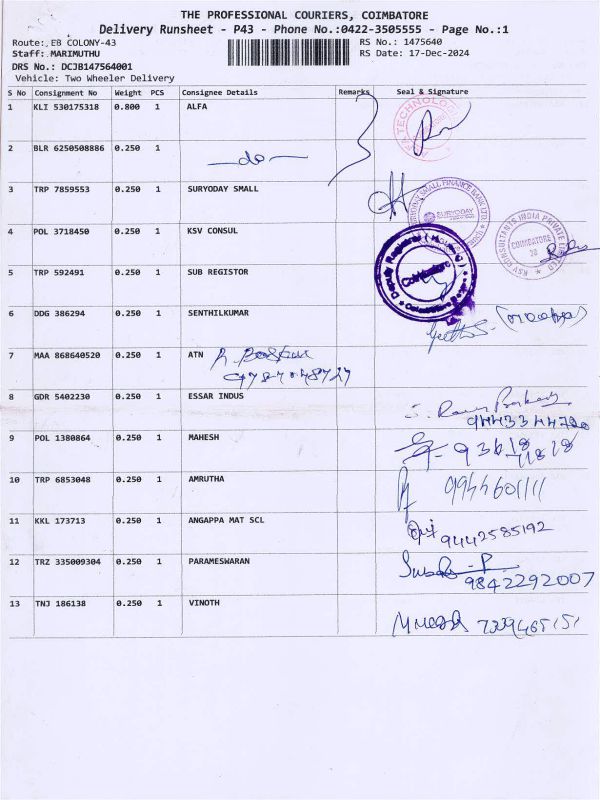 THE PROFESSIONAL COURIERS, COIMBATORE
Delivery Runsheet - P43 - Phone No.:0422-3505555 - Page No.:1
Route: EB COLONY-43 RS No.: 1475640
Staff: MARIMUTHU RS Date: 17-Dec-2024
DRS No.: DCJB147564001
Vehicle: Two Wheeler Delivery
S No Consignment No Weight PCS Consignee Details Remarks Seal & Signature
1 KLI 530175318 0.800 1 ALFA
2 BLR 6250508886 0.250 1 —do—
3 TRP 7859553 0.250 1 SURYODAY SMALL
SURYODAY
4 POL 3718450 0.250 1 KSV CONSUL
KSV CONSULTANTS INDIA PRIVATE LIMITED
COIMBATORE
5 TRP 592491 0.250 1 SUB REGISTOR
Coimbatore
6 DDG 386294 0.250 1 SENTHILKUMAR
7 MAA 868640520 0.250 1 ATN
8 GDR 5402230 0.250 1 ESSAR INDUS
9443344720
9 POL 1380864 0.250 1 MAHESH
10 TRP 6853048 0.250 1 AMRUTHA
9944601111
11 KKL 173713 0.250 1 ANGAPPA MAT SCL
9442585192
12 TRZ 335009304 0.250 1 PARAMESWARAN
9842292007
13 TNJ 186138 0.250 1 VINOTH